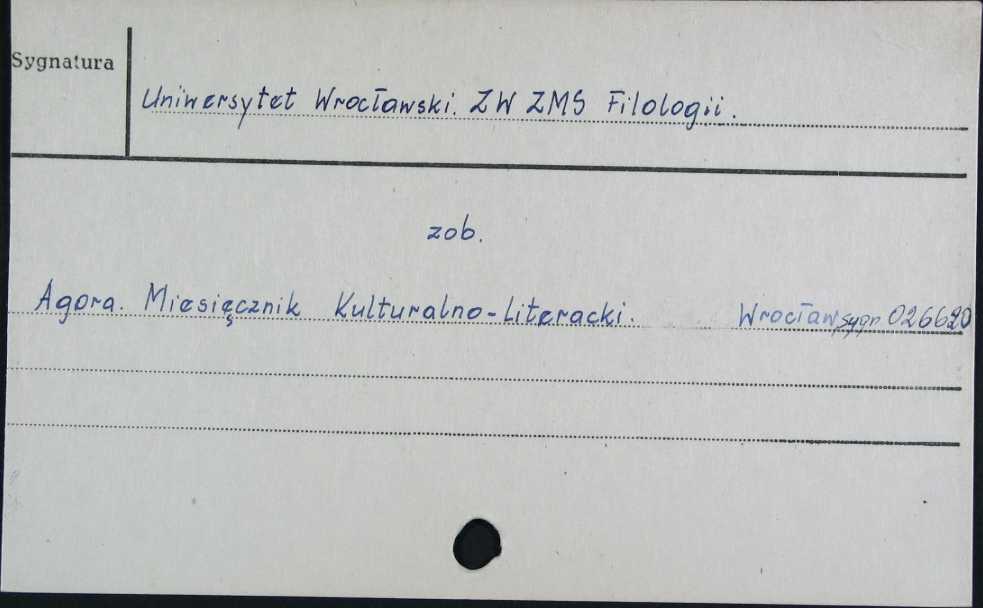 Sygnatura
Uniwersytet Wrocławski. ZW ZMS Filologii.
zob.
Agora. Miesięcznik Kulturalno-Literacki. Wrocław sygn 026620